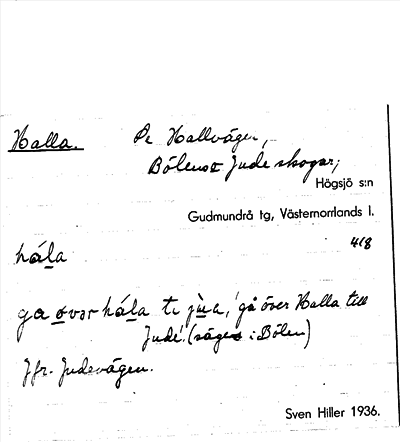 Halla. Se Hallvägen,
Bölens o Jude skogar;
Högsjö s:n
Gudmundrå tg, Västernorrlands l.
418
hála
ga ovər hála ti jùa, 'gå över Halla till
Jude'. (säges i Bölen)
Jfr. Judevägen.
Sven Hiller 1936.